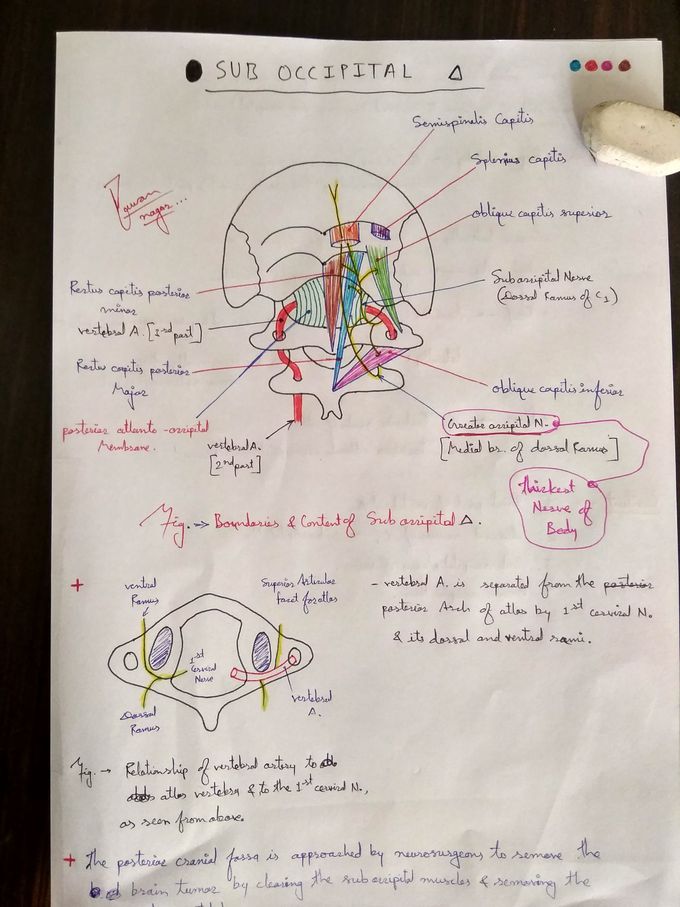 SUB OCCIPITAL Δ
Semispinalis Capitis
Splenius capitis
oblique capitis superior
nagar...
Rectus capitis posterior
minor
Suboccipital Nerve
(Dorsal Ramus of C1)
vertebral A. [3rd part]
Rectus capitis posterior
Major
oblique capitis inferior
posterior atlanto-occipital
Membrane.
vertebral A.
[2nd part]
Greater occipital N.
[Medial br. of dorsal Ramus]
thickest
Nerve of
Body
Fig. → Boundaries & Content of Suboccipital Δ.
+
ventral
Ramus
Superior Articular
facet for atlas
1st
Cervical
Nerve
Dorsal
Ramus
vertebral
A.
- vertebral A. is separated from the posterior
posterior Arch of atlas by 1st cervical N.
& its dorsal and ventral rami.
Fig. → Relationship of vertebral artery to
atlas vertebra & to the 1st cervical N.,
as seen from above.
+ the posterior cranial fossa is approached by neurosurgeons to remove the
brain tumor by clearing the suboccipital muscles & removing the